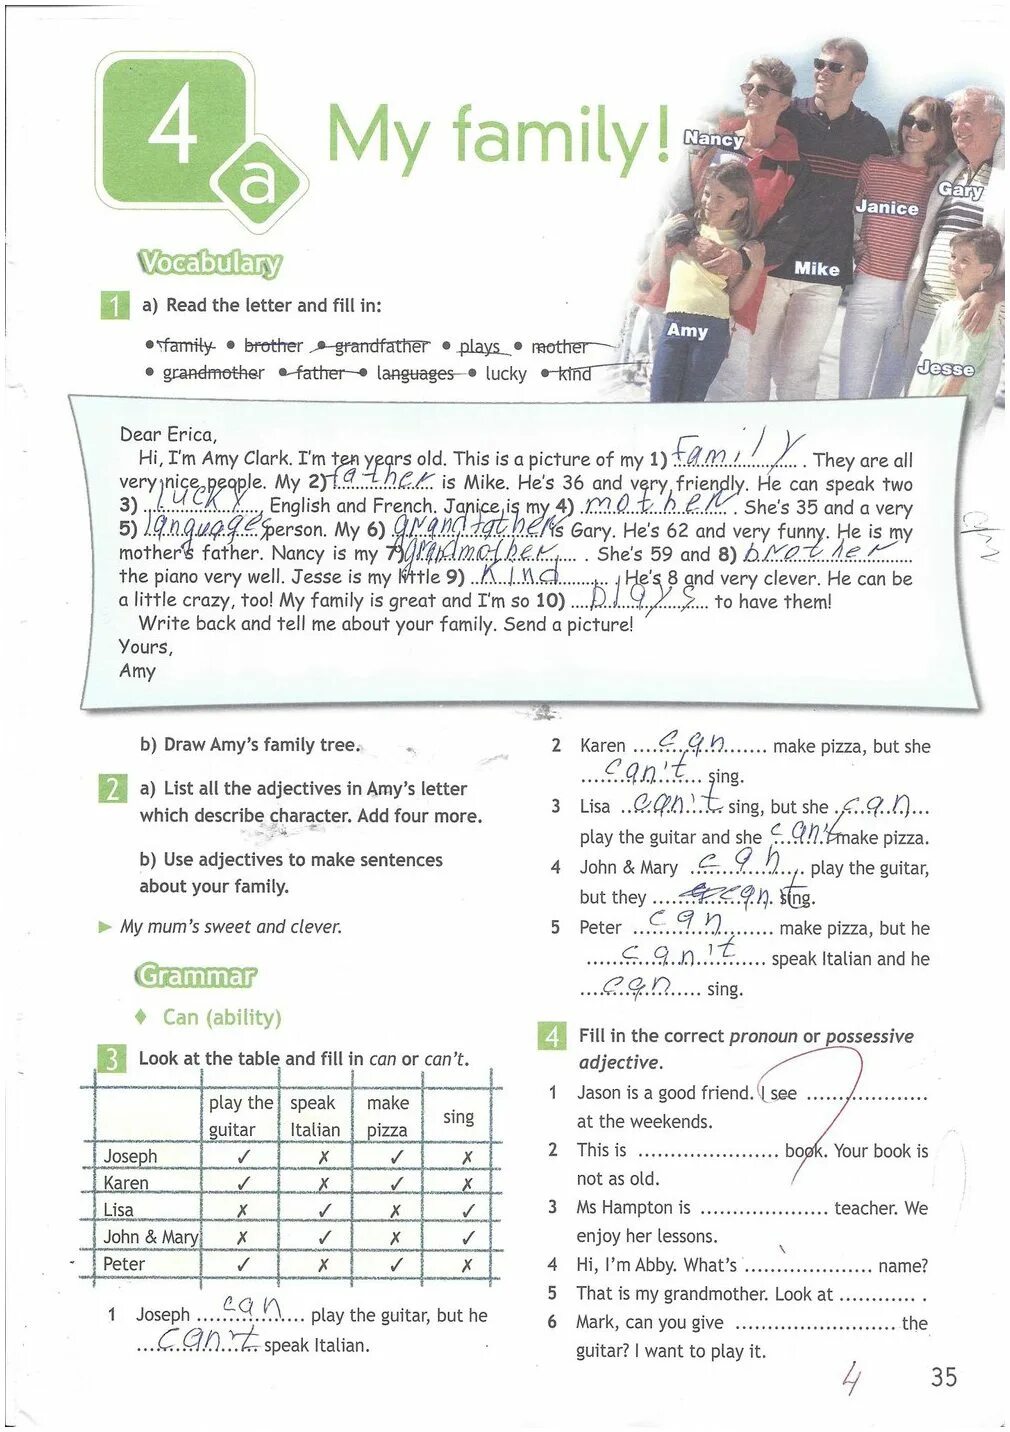 4
a
My family!
Nancy
Gary
Janice
Mike
Amy
Jesse
Vocabulary
1 a) Read the letter and fill in:
• family • brother • grandfather • plays • mother
• grandmother • father • languages • lucky • kind
Dear Erica,
Hi, I'm Amy Clark. I'm ten years old. This is a picture of my 1) family. They are all
very nice people. My 2) father is Mike. He's 36 and very friendly. He can speak two
3) lucky, English and French. Janice is my 4) mother. She's 35 and a very
5) languages person. My 6) grandfather is Gary. He's 62 and very funny. He is my
mother's father. Nancy is my 7) grandmother. She's 59 and 8) brother
the piano very well. Jesse is my little 9) kind. He's 8 and very clever. He can be
a little crazy, too! My family is great and I'm so 10) plays to have them!
Write back and tell me about your family. Send a picture!
Yours,
Amy
b) Draw Amy's family tree.
2 a) List all the adjectives in Amy's letter
which describe character. Add four more.
b) Use adjectives to make sentences
about your family.
► My mum's sweet and clever.
Grammar
♦ Can (ability)
3 Look at the table and fill in can or can't.
play the guitar speak Italian make pizza sing
Joseph ✓ ✗ ✓ ✗
Karen ✓ ✗ ✓ ✗
Lisa ✗ ✓ ✗ ✓
John & Mary ✗ ✓ ✗ ✓
Peter ✓ ✗ ✓ ✗
1 Joseph can play the guitar, but he
can't speak Italian.
2 Karen can make pizza, but she
can't sing.
3 Lisa can't sing, but she can
play the guitar and she can't make pizza.
4 John & Mary can play the guitar,
but they can't sing.
5 Peter can make pizza, but he
can't speak Italian and he
can sing.
4 Fill in the correct pronoun or possessive
adjective.
1 Jason is a good friend. I see ....................
at the weekends.
2 This is ....................... book. Your book is
not as old.
3 Ms Hampton is ..................... teacher. We
enjoy her lessons.
4 Hi, I'm Abby. What's ..................... name?
5 That is my grandmother. Look at ............ .
6 Mark, can you give ........................... the
guitar? I want to play it.
4
35